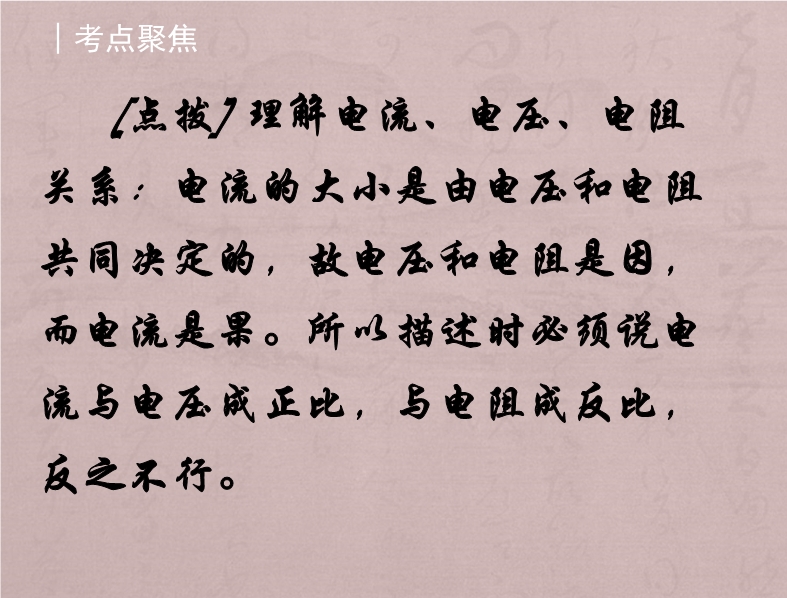 ｜考点聚焦
[点拨]理解电流、电压、电阻
关系：电流的大小是由电压和电阻
共同决定的，故电压和电阻是因，
而电流是果。所以描述时必须说电
流与电压成正比，与电阻成反比，
反之不行。